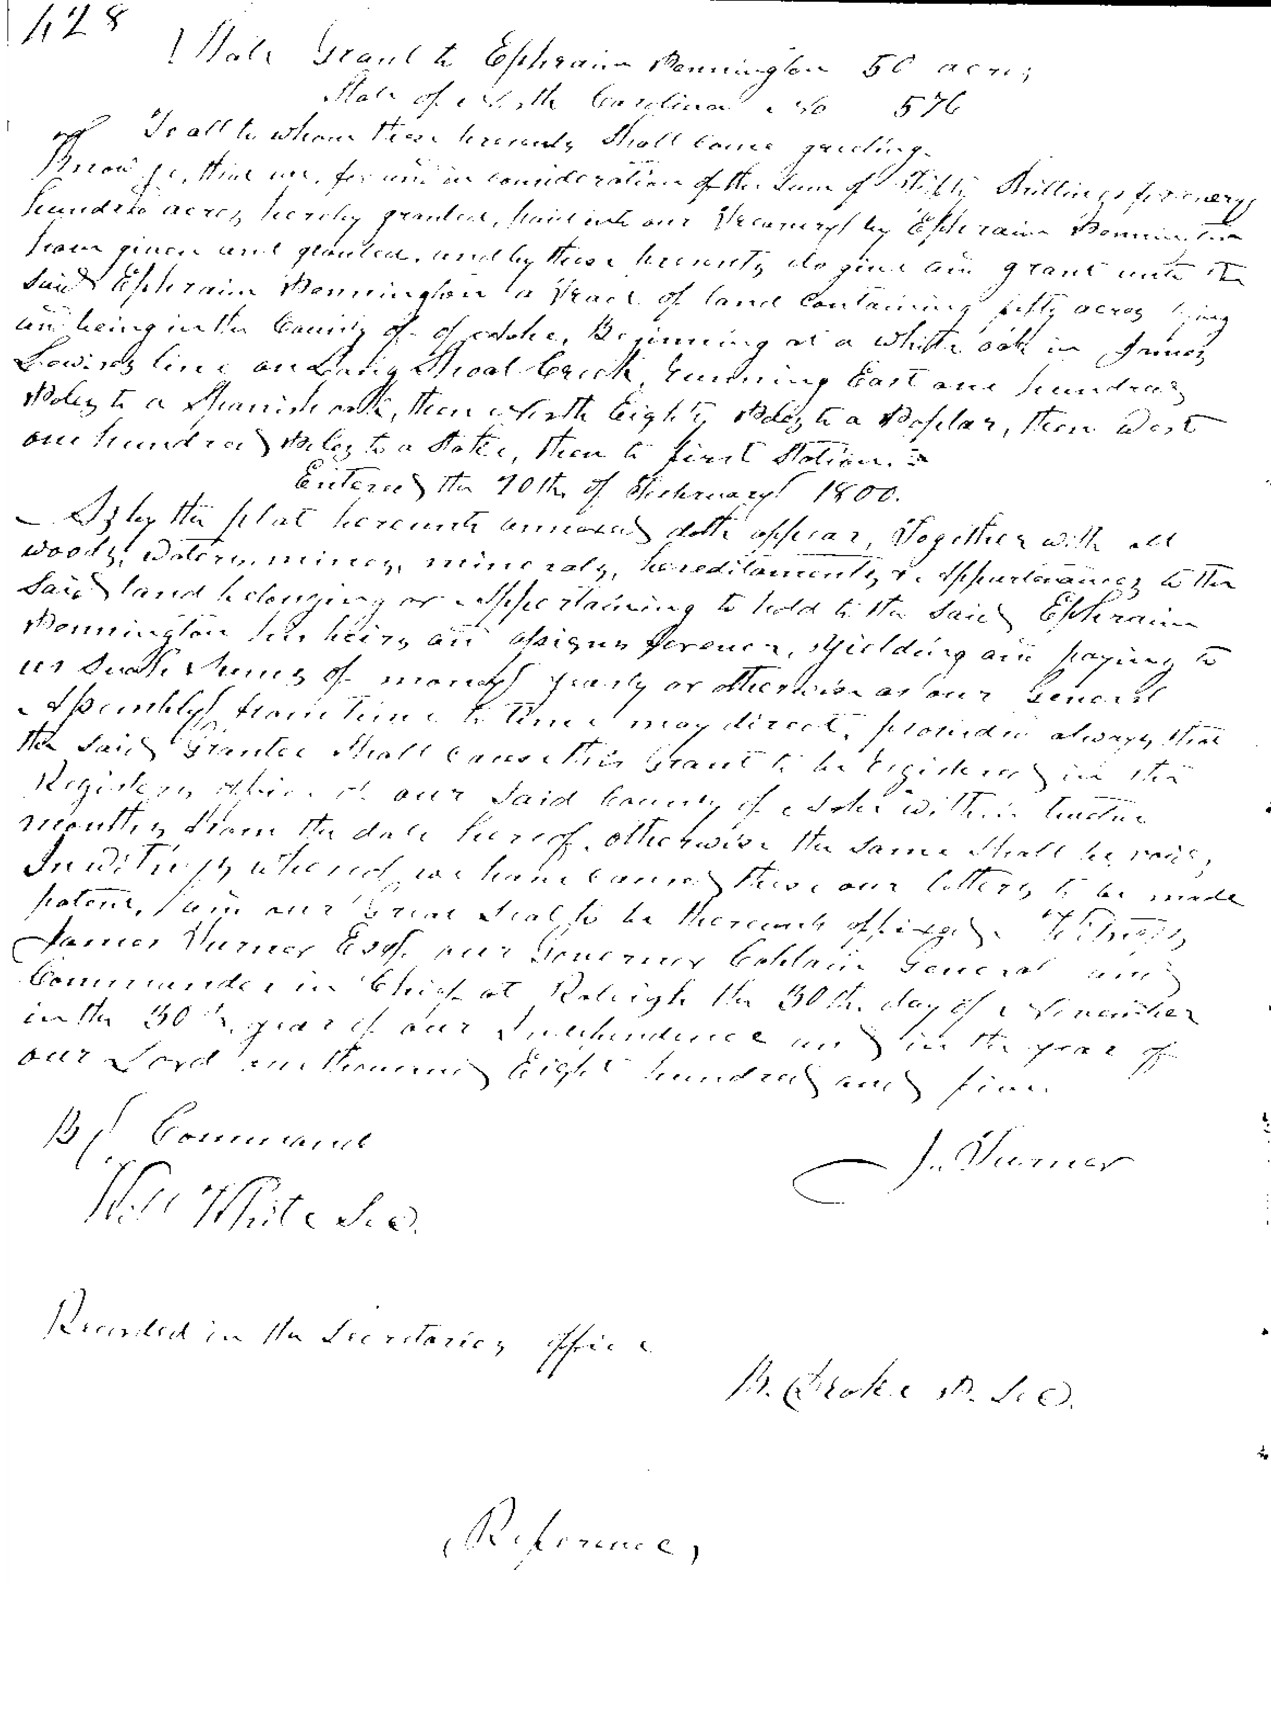 428
State Grant to Ephraim Pennington 50 acres
State of North Carolina No 576
To all to whom these presents Shall Come greeting.
Know ye, that we, for and in consideration of the Sum of Fifty Shillings for every
hundred acres hereby granted, paid into our Treasury by Ephraim Pennington
have given and granted, and by these presents do give and grant unto the
said Ephraim Pennington a Tract of land containing fifty acres lying
and being in the County of Ashe, Beginning at a white oak in James
Lewises line on Long Shoal Creek, running East one hundred
Poles to a Spanish oak, then North Eighty Poles to a Poplar, then West
one hundred Poles to a Stake, then to first Station.
Entered the 20th of February 1800.
As by the plat hereunto annexed doth appear, Together with all
woods, Waters, mines, minerals, hereditaments & Appurtenances to the
Said land belonging or Appertaining to hold to the Said Ephraim
Pennington his heirs and assigns forever, Yielding and paying to
us Such Sums of money yearly or otherwise as our General
Assembly from time to time may direct, provided always that
the Said Grantee Shall cause this Grant to be registered in the
Registers office of our Said County of Ashe within twelve
months from the date hereof, otherwise the same Shall be void,
In witness whereof, we have caused these our letters to be made
patent, and our Great Seal to be thereunto affixed. Witness,
James Turner Esqr. our Governor Captain General and
Commander in Chief at Raleigh the 30th day of November
in the 30th year of our Independence and in the year of
our Lord one thousand Eight hundred and five.
By Command
J. Turner
Will White Sec.
Recorded in the Secretaries office
B. Drake P. Sec.
Reference,